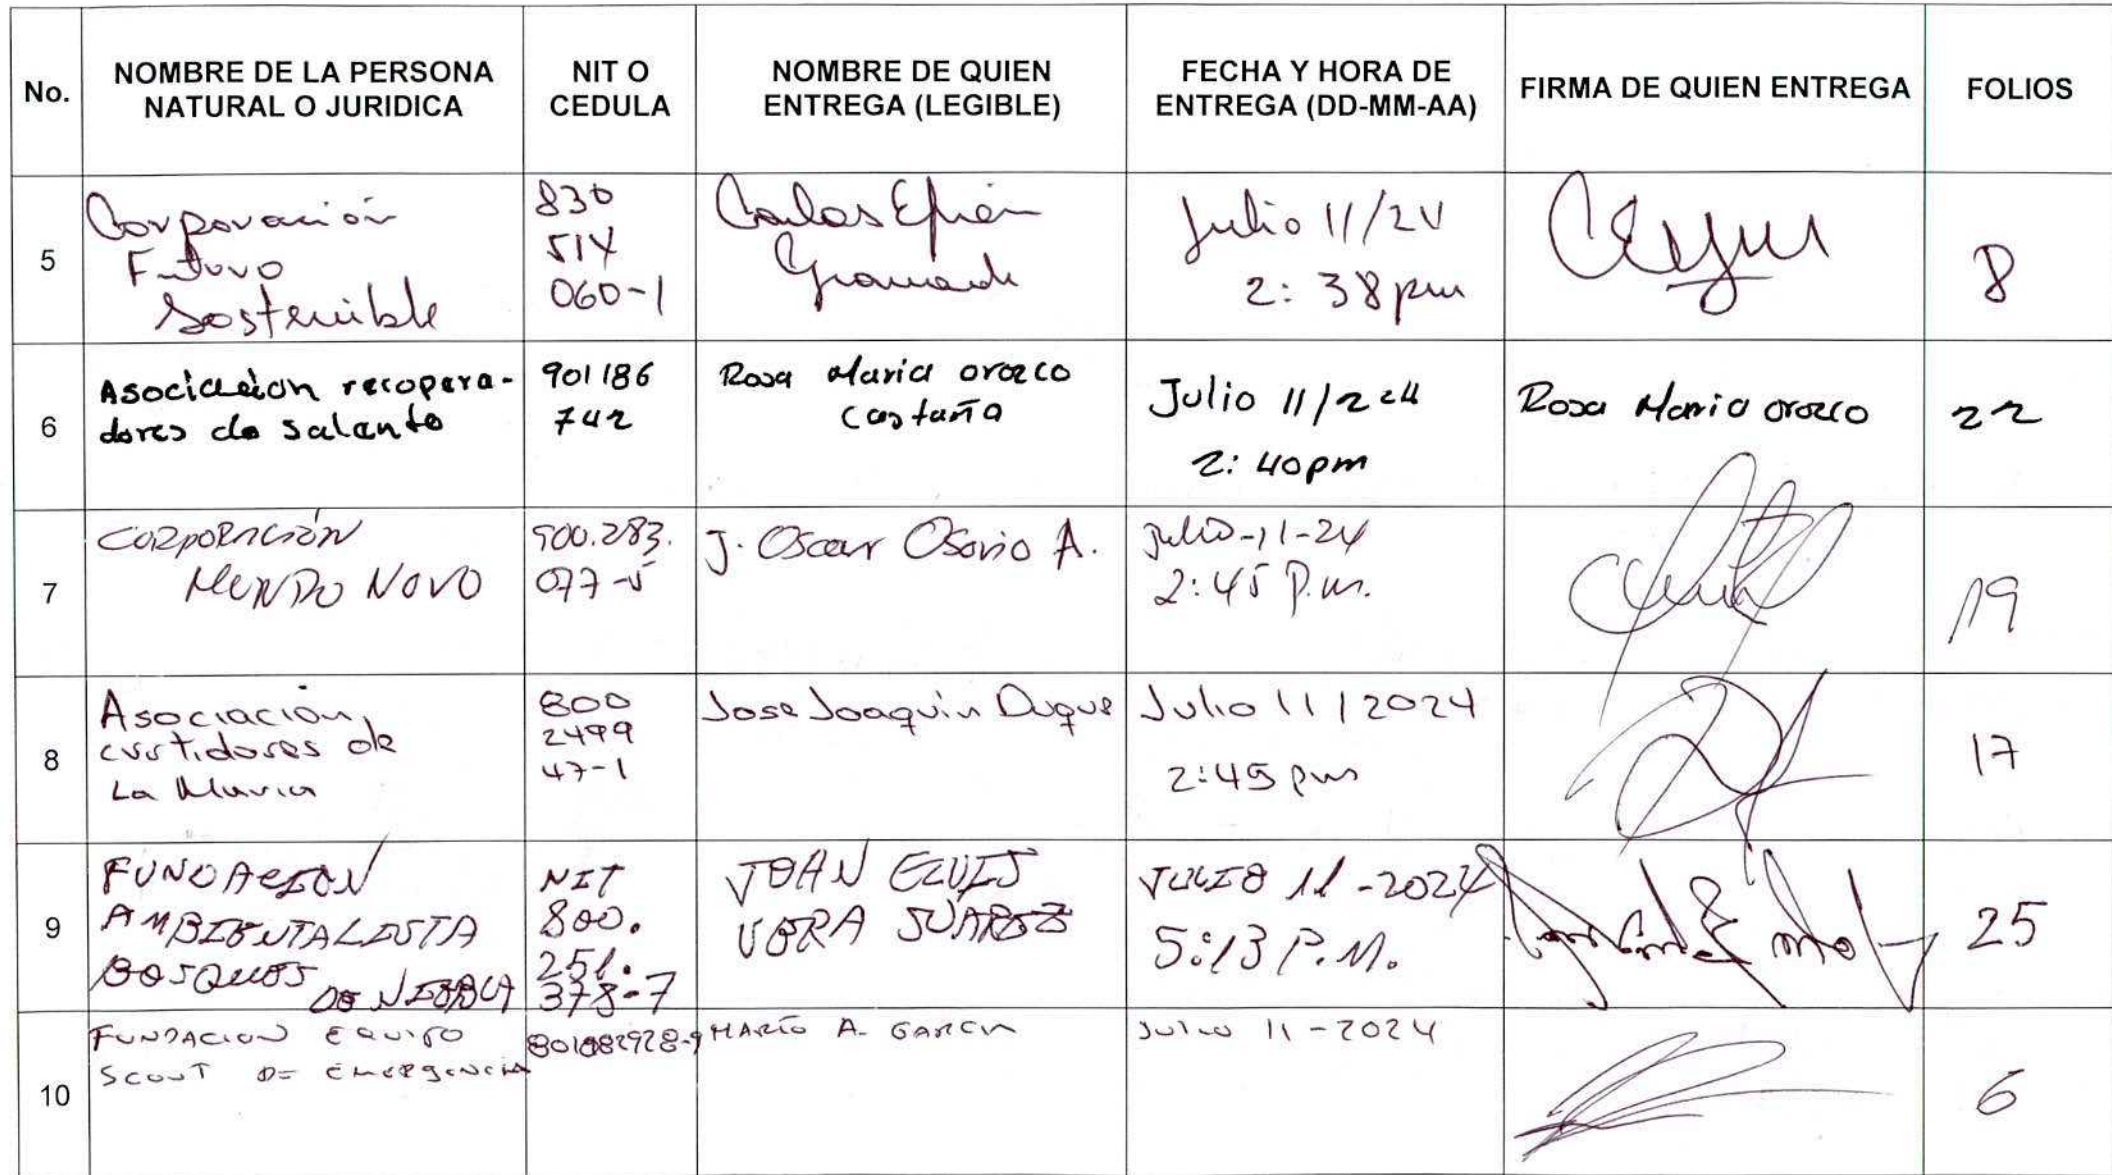 No.
NOMBRE DE LA PERSONA
NATURAL O JURIDICA
NIT O
CEDULA
NOMBRE DE QUIEN
ENTREGA (LEGIBLE)
FECHA Y HORA DE
ENTREGA (DD-MM-AA)
FIRMA DE QUIEN ENTREGA
FOLIOS
5
Corporación
Futuro
Sostenible
830
514
060-1
Carlos Efrén
Granada
Julio 11/24
2:38pm
8
6
Asociación recopera-
dores de salento
901186
742
Rosa Maria orozco
Castaña
Julio 11/224
2:40pm
Rosa Maria orozco
22
7
CORPORACIÓN
MUNDO NOVO
900.283.
077-5
J. Oscar Osorio A.
Julio-11-24
2:45 P.m.
19
8
Asociación
curtidores de
La Maria
800
2499
47-1
Jose Joaquin Duque
Julio 11/2024
2:45 pm
17
9
FUNDACION
AMBIENTALISTA
BOSQUES
DE NIEBLA
NIT
800.
251.
378-7
JOHN ELVIS
VERA SUAREZ
JULIO 11-2024
5:13 P.M.
25
10
FUNDACION EQUIPO
SCOUT DE EMERGENCIA
MARIO A. GARCIA
Julio 11-2024
6